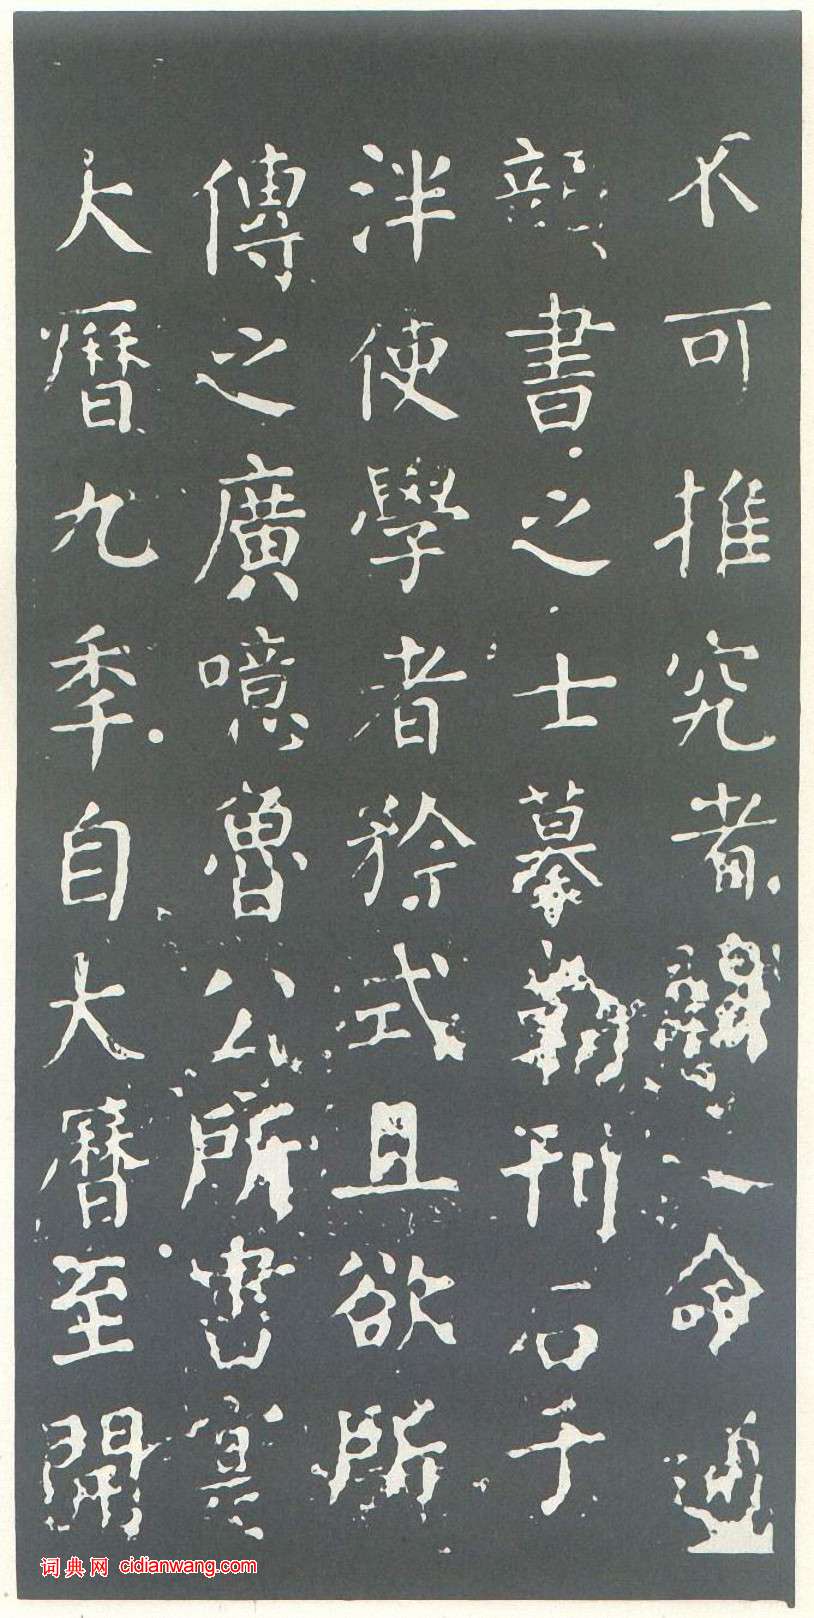 不可推究者 一命通
顔書之士摹勒刊石于
泮使學者矜式且欲所
傳之廣噫魯公所書寔
大曆九季自大曆至開
词典网 cidianwang.com